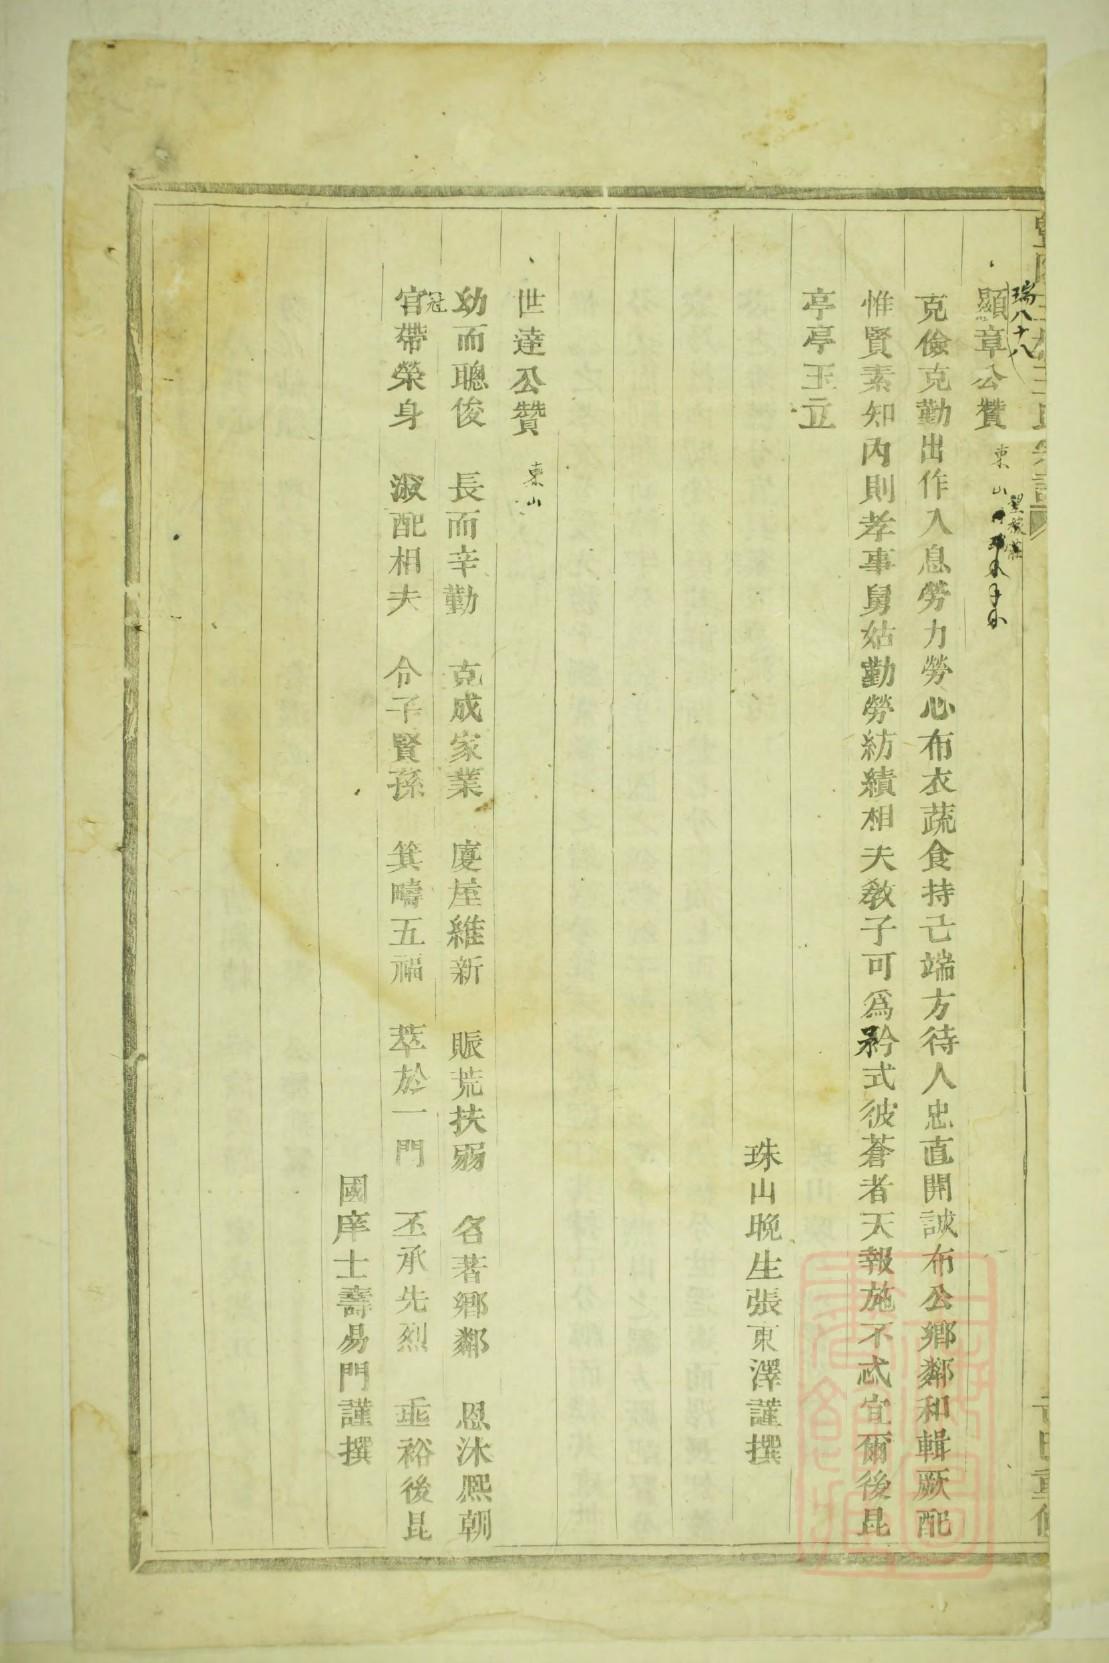 瑞八十八
顯章公贊 東山
克儉克勤出作入息勞力勞心布衣蔬食持己端方待人忠直開誠布公鄉鄰和輯厥配
惟賢素知內則孝事舅姑勤勞紡績相夫教子可為矜式彼蒼者天報施不忒宜爾後昆
亭亭玉立
珠山晚生張東澤謹撰
世達公贊 東山
幼而聰俊 長而辛勤 克成家業 廈屋維新 賑荒扶弱 名著鄉鄰 恩沐熙朝
冠
官帶榮身 淑配相夫 令子賢孫 箕疇五福 萃於一門 丕承先烈 垂裕後昆
國庠士壽易門謹撰